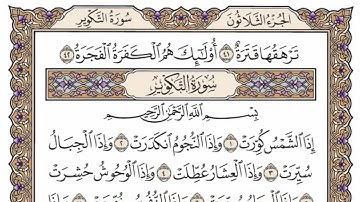 سُورَةُ التَّكْوِيرِ الجُزْءُ الثَّلَاثُونَ
تَرْهَقُهَا قَتَرَةٌ ٤١ أُوْلَٰٓئِكَ هُمُ ٱلْكَفَرَةُ ٱلْفَجَرَةُ ٤٢
سُورَةُ التَّكْوِيرِ
بِسْمِ ٱللَّهِ ٱلرَّحْمَٰنِ ٱلرَّحِيمِ
إِذَا ٱلشَّمْسُ كُوِّرَتْ ١ وَإِذَا ٱلنُّجُومُ ٱنكَدَرَتْ ٢ وَإِذَا ٱلْجِبَالُ
سُيِّرَتْ ٣ وَإِذَا ٱلْعِشَارُ عُطِّلَتْ ٤ وَإِذَا ٱلْوُحُوشُ حُشِرَتْ